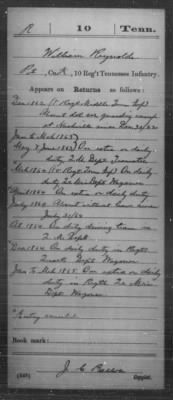 R 10 Tenn.
William Reynolds
Pvt., Co. K, 10 Reg't Tennessee Infantry.
Appears on Returns as follows:
Dec 1862 (1 Regt Middle Tenn Inf)
Absent det. ser. guarding camp
at Nashville since Dec 26/62
Jan to Mch 1863
May & June 1863 On extra or daily
duty Q.M. Dept Teamster
Mch 1864 On
daily duty Wagoner
April 1864 On extra or daily duty
July 1864 Absent without leave since
July 31/64
Oct 1864 On duty driving team in
Q.M. Dept
Nov 1864 On daily duty in Regtl
Dept Wagoner
Jan to Mch 1865 On extra or daily
duty in Regtl
Dept Wagoner
*Entry canceled
Book mark:
J. C.
Copyist.